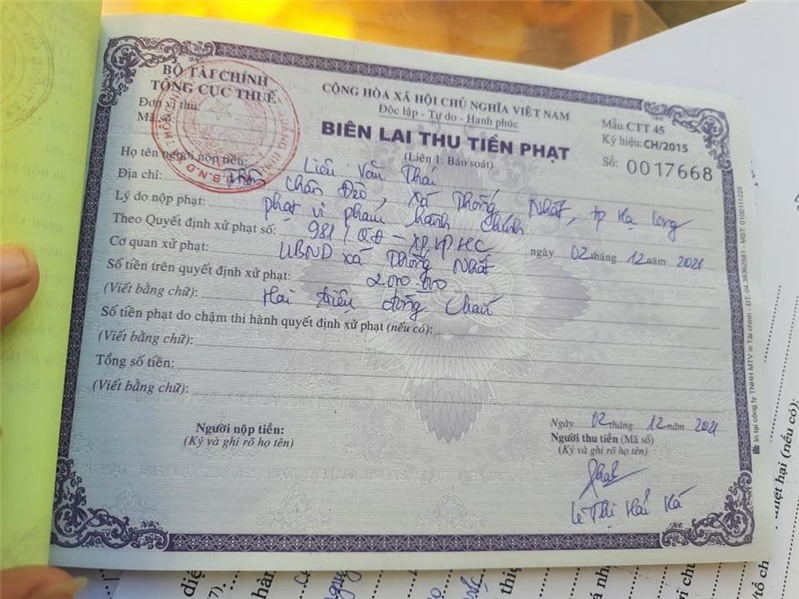 BỘ TÀI CHÍNH
TỔNG CỤC THUẾ
Đơn vị thu:
Mã số:
CỘNG HÒA XÃ HỘI CHỦ NGHĨA VIỆT NAM
Độc lập - Tự do - Hạnh phúc
BIÊN LAI THU TIỀN PHẠT
(Liên 1: Báo soát)
Mẫu CTT 45
Ký hiệu: CH/2015
Số: 0017668
Họ tên người nộp tiền: Liêu Văn Thái
Địa chỉ: thôn Chân Đèo, xã Thống Nhất, tp Hạ Long
Lý do nộp phạt: phạt vi phạm hành chính
Theo Quyết định xử phạt số: 981/QĐ-XPVPHC ngày 02 tháng 12 năm 2021
Cơ quan xử phạt: UBND xã Thống Nhất
Số tiền trên quyết định xử phạt: 2.000.000
(Viết bằng chữ): Hai triệu đồng chẵn
Số tiền phạt do chậm thi hành quyết định xử phạt (nếu có):
(Viết bằng chữ):
Tổng số tiền:
(Viết bằng chữ):
Người nộp tiền:
(Ký và ghi rõ họ tên)
Ngày 02 tháng 12 năm 2021
Người thu tiền (Mã số)
(Ký và ghi rõ họ tên)
Lê Thị Hải Hà
In tại công ty TNHH MTV in Tài chính - ĐT: 04.38362581 - MST: 0100111225